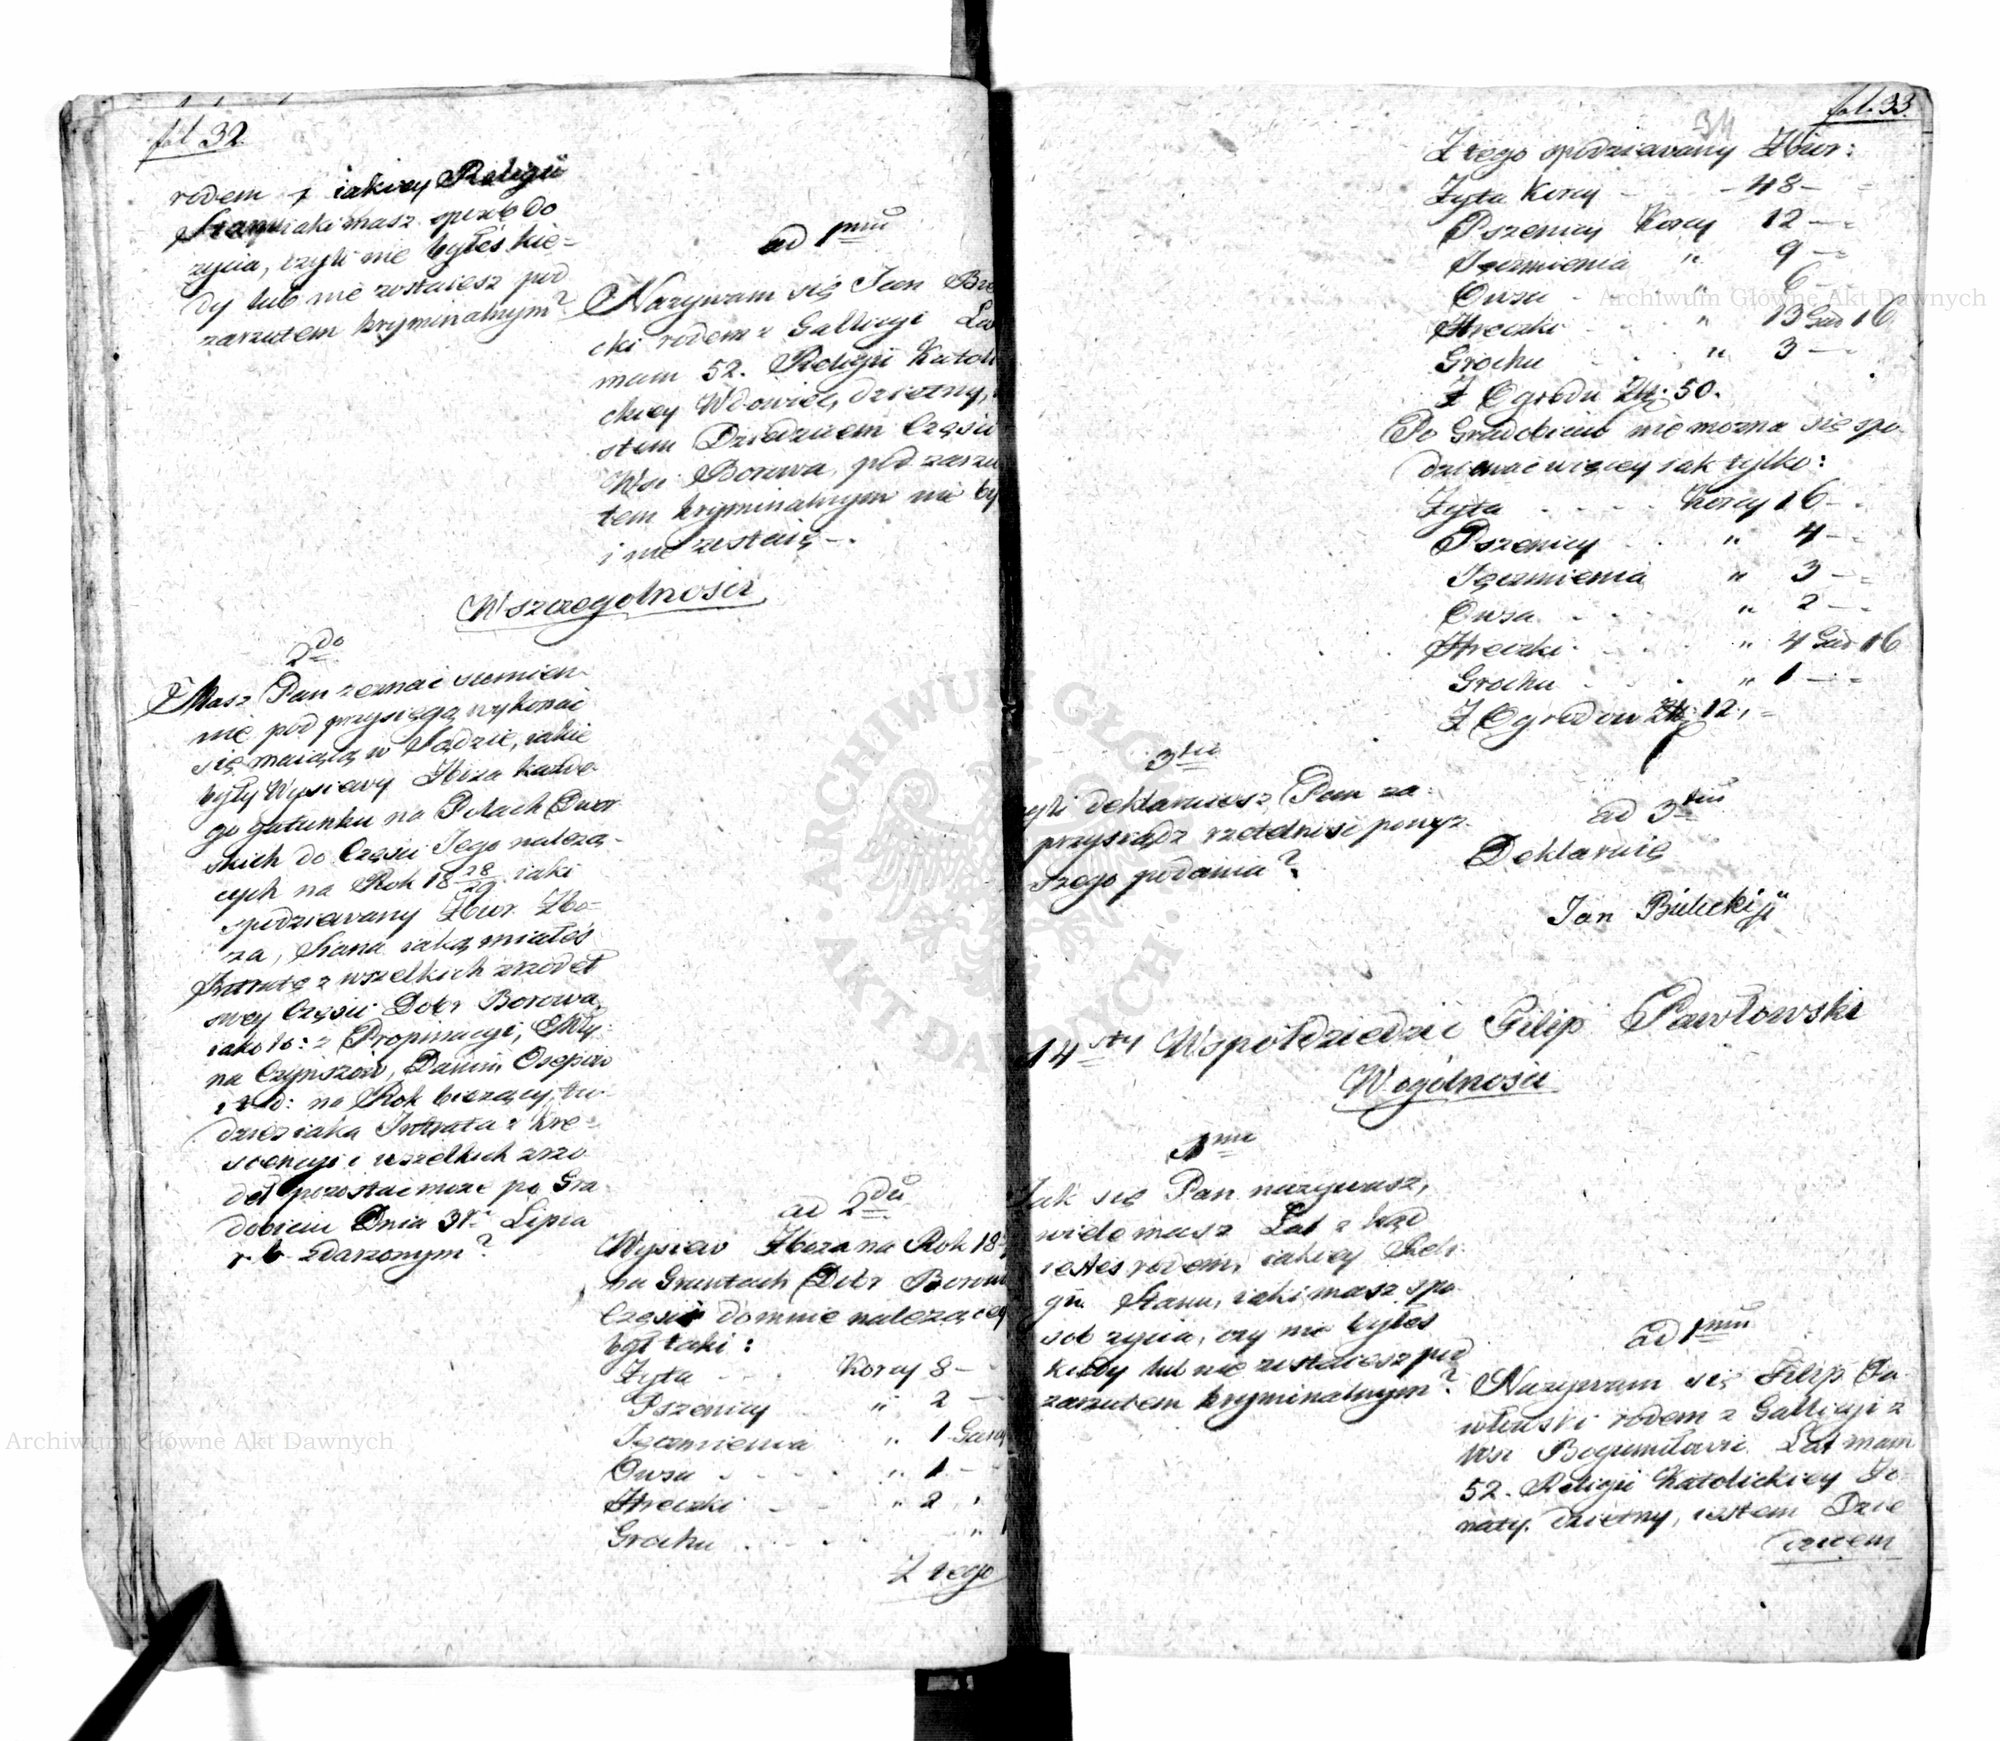 fol 32.
rodem z iakiey Religii
Stanu iaki masz sposób do
zycia, czyli nie byłeś kie-
dy lub nie zostaiesz pod
zarzutem kryminalnym?
ad 1mu
Nazywam się Jan
cki rodem z Gallicyi
mam 52. Religii Katoli
ckiey Wdowiec, dzietny,
stem Dziedzicem Części
Wsi Borowa, pod zarzu
tem kryminalnym nie by
i nie zostaię -.
W szczegolnosci
2do
Masz Pan zeznać sumien-
nie pod przysięgą wykonać
się maiącą w Sądzie, iakie
były Wysiewy Zboza kazde-
go gatunku na Polach Dwor
skich do Części Jego nalezą-
cych na Rok 1828/29 iaki
spodziewany Zbior Zbo-
za, Siana iaką miałeś
Intratę z wszelkich zrzodeł
swey Części Dobr Borowa,
iako to: z Propinacyi, Mły-
na Czynszów, Danin, Osepow
i t d: na Rok biezący, tu-
dziesz iaka Intrata z kre-
scencyi i wszelkich zrzo
deł pozostac moze po Gra
dobiciu Dnia 31. Lipca
r. b. zdarzonym?
ad 2du
Wysiew Zboza na Rok 18
na Gruntach Dobr Borow
Części do mnie nalezącey
był taki:
Zyta - - Korcy 8 -
Pszenicy " 2 -
Jęczmienia " 1 Garcy
Owsa - - - " 1 -
Hreczki - - " 2 "
Grochu - - - "
Z tego
fol. 33.
34
Z tego spodziewany Zbior:
Zyta Korcy - - - 48 -
Pszenicy Korcy 12 -
Jęczmienia " 9 -
Owsa - " 6 -
Hreczki - " 13 Gar 16
Grochu - " 3 -
Z Ogrodu Złp. 50.
Po Gradobiciu nie mozna się spo-
dziewać więcey iak tylko:
Zyta - - - Korcy 16 -
Pszenicy - " 4 -
Jęczmienia " 3 -
Owsa - - " 2 -
Hreczki - - " 4 Gar 16
Grochu - - " 1 -
Z Ogrodow Złp. 12.,
3tio
czyli deklaruiesz Pan za-
przysiądz rzetelność powyz-
szego podania?
ad 3tium
Deklaruię
Jan Bielecki
14sty Wspołdziedzic Filip Pawłowski
W ogólnosci
1mo
Jak się Pan nazywasz,
wiele masz Lat z kąd
iesteś rodem, iakiey Reli-
gii Stanu, iaki masz spo-
sób zycia, czy nie byłeś
kiedy lub nie zostaiesz pod
zarzutem kryminalnym?
ad 1mum
Nazywam się Filip Pa-
włowski rodem z Gallicyi z
Wsi Bogumiłowic Lat mam
52. Religii Katolickiey Zo-
naty, dzietny, iestem Dzie
dzicem
Archiwum Główne Akt Dawnych
Archiwum Główne Akt Dawnych
ARCHIWUM GŁÓWNE
AKT DAWNYCH